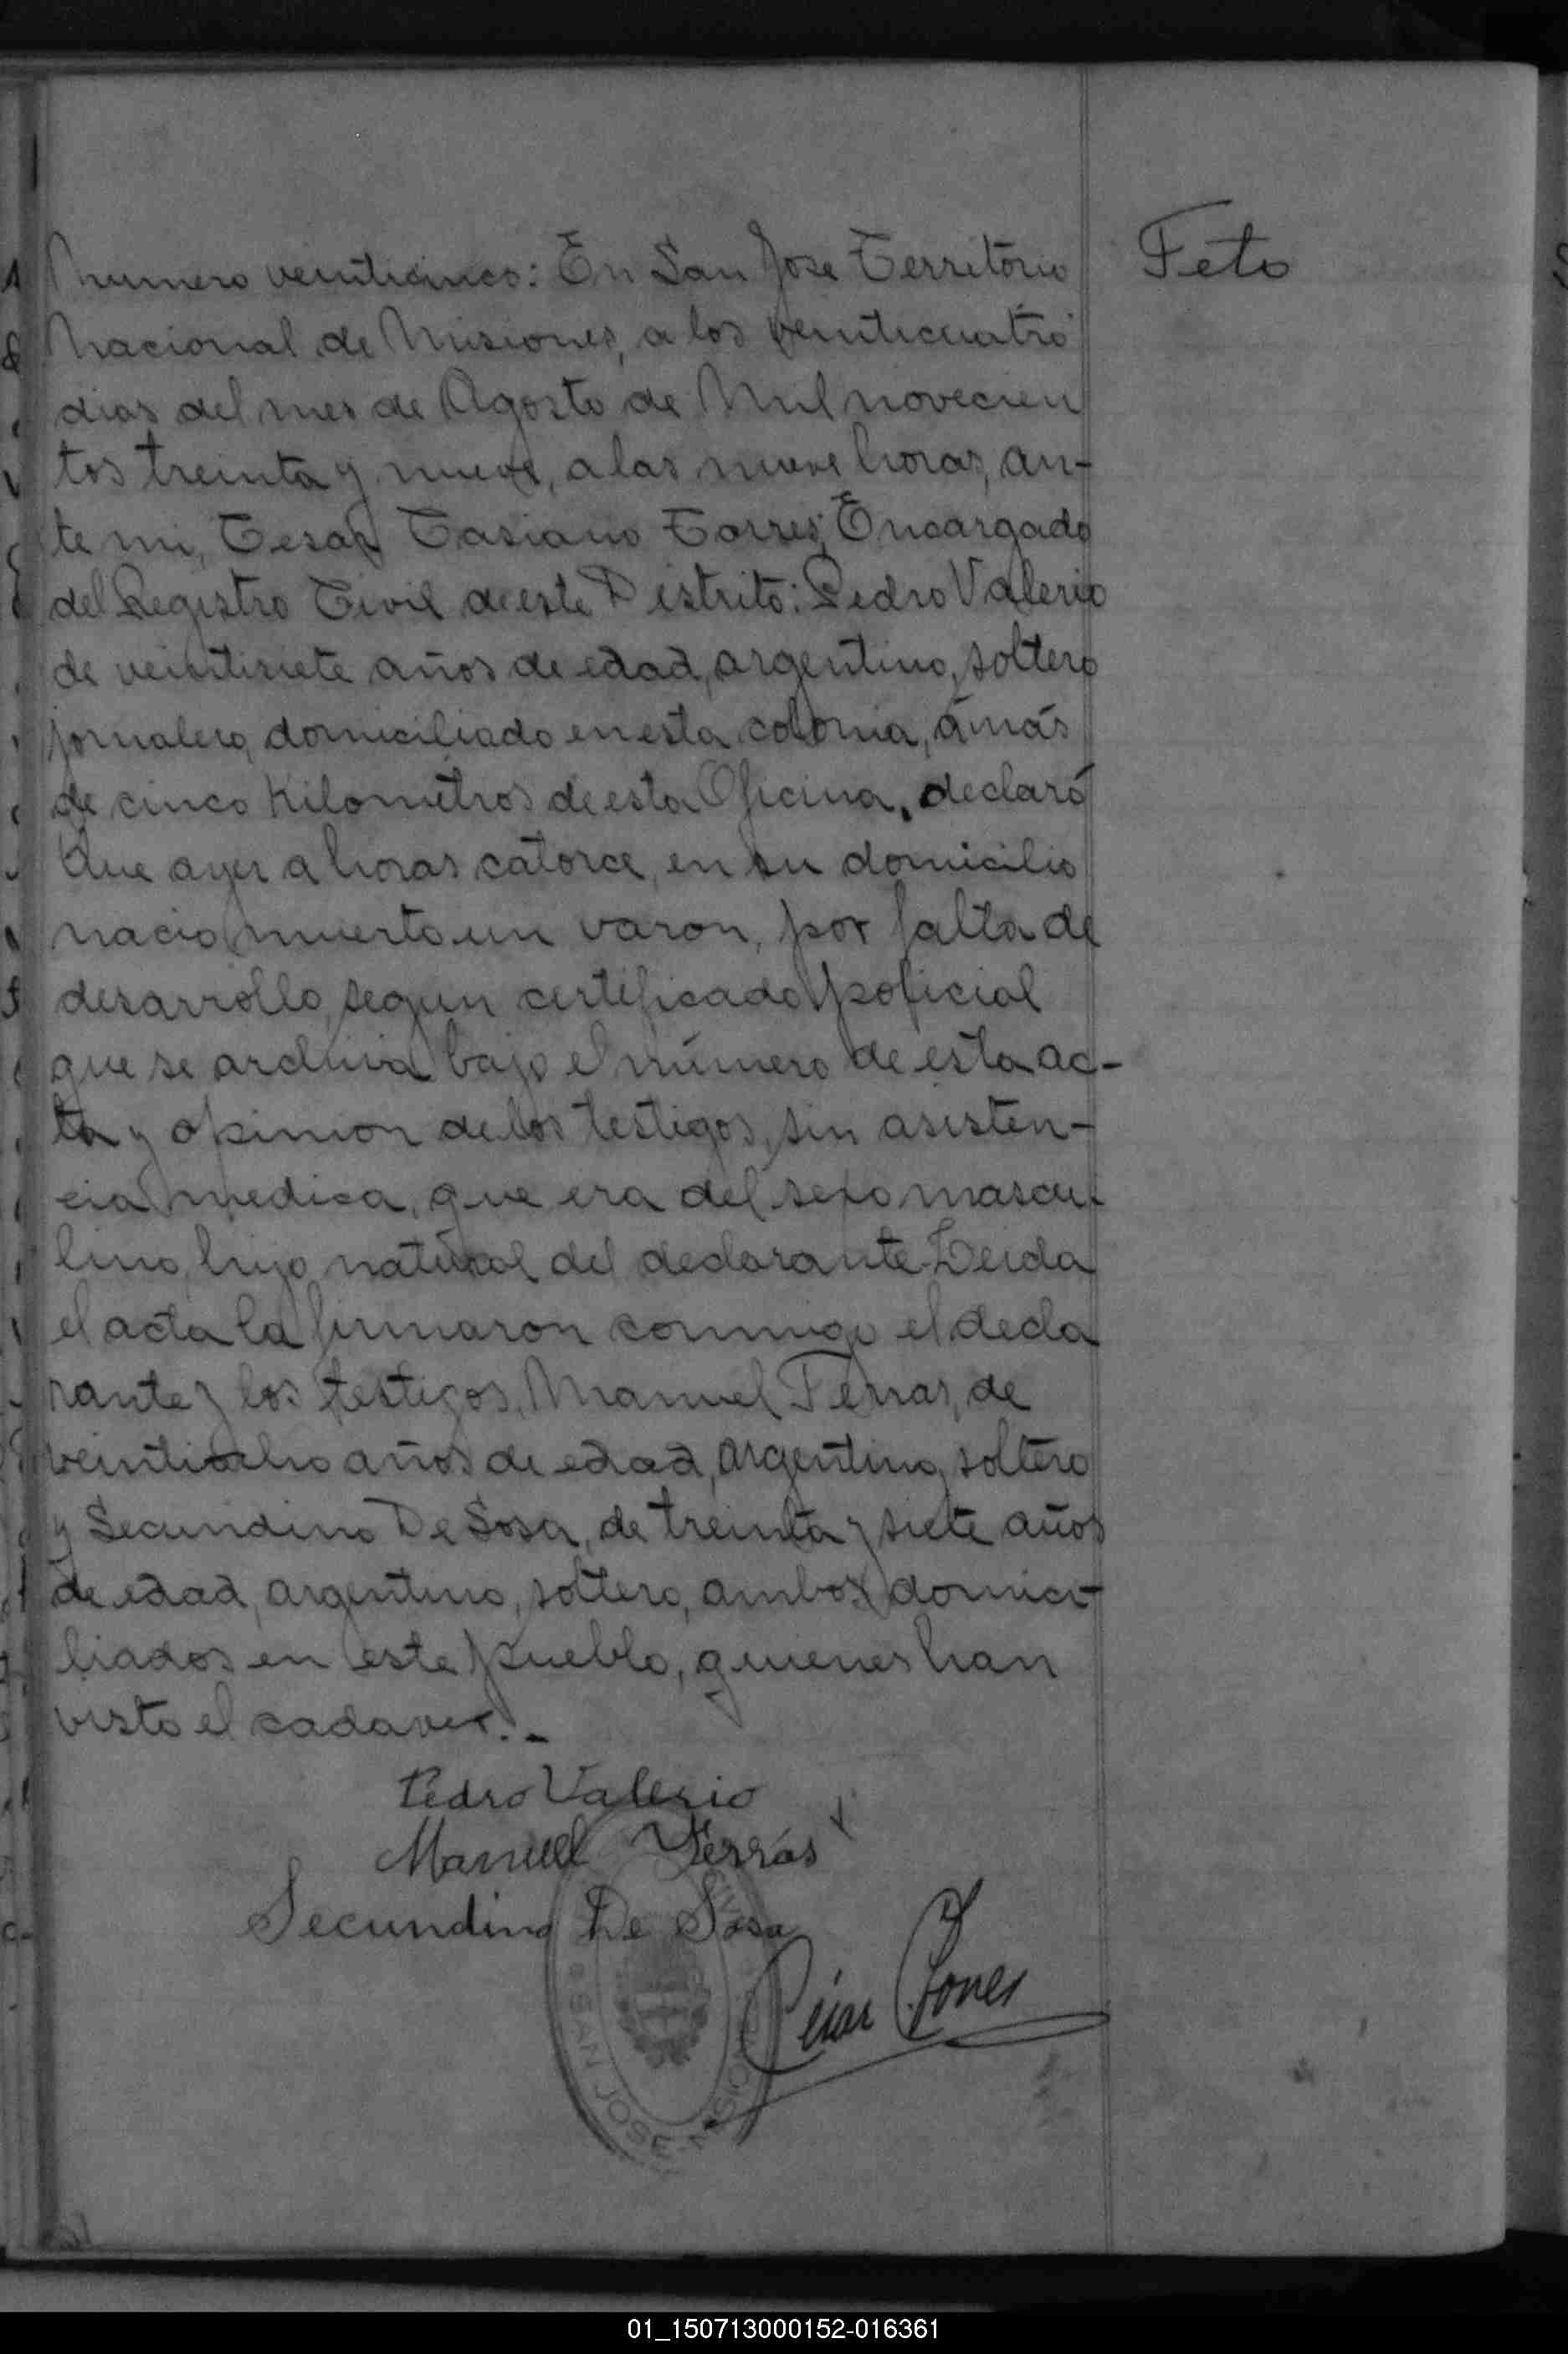 Feto
Numero veinticinco: En San Jose Territorio
Nacional de Misiones, a los veinticuatro
dias del mes de Agosto de Mil novecien
tos treinta y nueve, a las nueve horas, an-
te mi, Cesar Casiano Torres, Encargado
del Registro Civil de este Distrito: Pedro Valerio
de veintisiete años de edad, argentino, soltero
jornalero, domiciliado en esta colonia, á más
de cinco Kilometros de esta Oficina, declaró
Que ayer a horas catorce, en su domicilio
nacio muerto un varon, por falta de
desarrollo, segun certificado policial
que se archiva bajo el número de esta ac-
ta y opinion de los testigos, sin asisten-
cia medica, que era del sexo mascu
lino, hijo natural del declarante. Leida
el acta la firmaron conmigo el decla
rante y los testigos, Manuel Ferras, de
veintiocho años de edad, argentino, soltero
y Secundino De Sosa, de treinta y siete años
de edad, argentino, soltero, ambos domici-
liados en este pueblo, quienes han
visto el cadaver.-
Pedro Valerio
Manuel Ferrás
Secundino De Sosa
SAN JOSE
01_150713000152-016361